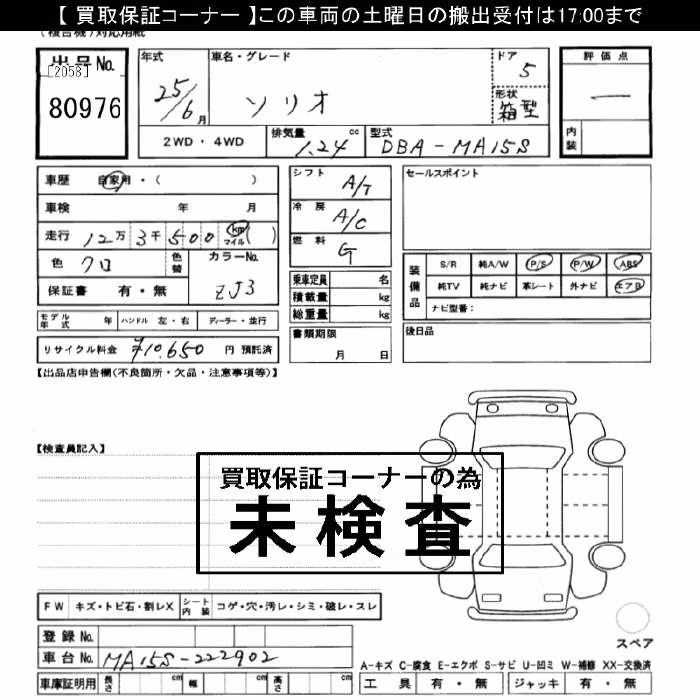 【 買取保証コーナー 】この車両の土曜日の搬出受付は17:00まで
(複合機)対応用紙
出品No.
[2058]
80976
年式
25/6月
車名・グレード
ソリオ
ドア
5
形状
箱型
評価点
一
内装
2WD・4WD
排気量
1.24
cc
型式
DBA-MA15S
車歴 自家用・( )
車検 年 月
走行 12万3千500 km マイル ( )
色 クロ
色替
カラーNo.
ZJ3
保証書 有・無
モデル年式 年 ハンドル 左・右 ディーラー・並行
リサイクル料金 ¥10,650 円 預託済
シフト A/T
冷房 A/C
燃料 G
乗車定員 名
積載量 kg
総重量 kg
書類期限
月 日
セールスポイント
装備品
S/R 純A/W P/S P/W ABS
純TV 純ナビ 革シート 外ナビ エアB
ナビ型番:
後日品
【出品店申告欄(不良箇所・欠品・注意事項等)】
【検査員記入】
買取保証コーナーの為
未検査
FW キズ・トビ石・割レX シート内装 コゲ・穴・汚レ・シミ・破レ・スレ
登録No.
車台No. MA15S-222902
車庫証明用 長さ cm 幅 cm 高さ cm
スペア
A-キズ C-腐食 E-エクボ S-サビ U-凹ミ W-補修 XX-交換済
工具 有・無 ジャッキ 有・無